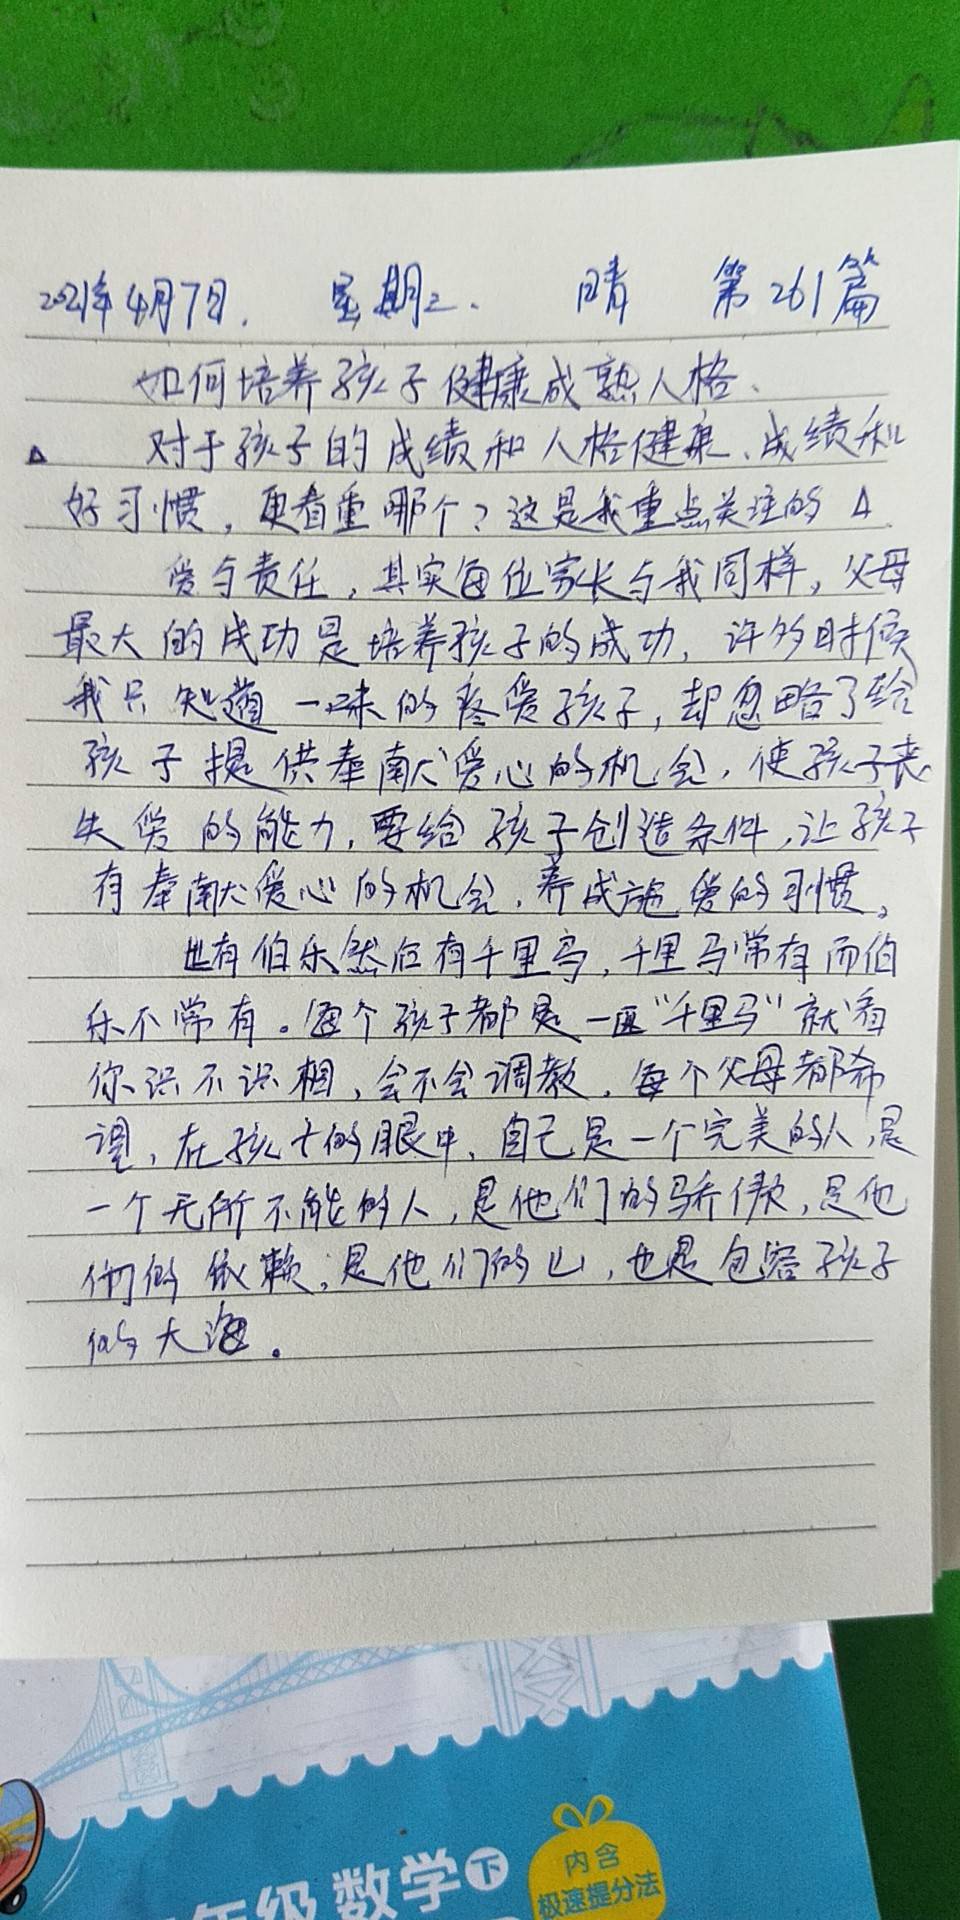 2021年4月7日. 星期三. 晴 第261篇
如何培养孩子健康成熟人格、
△ 对于孩子的成绩和人格健康、成绩和
好习惯，更看重哪个？这是我重点关注的 △
爱与责任，其实每位家长与我同样，父母
最大的成功是培养孩子的成功，许多时候
我只知道一味的疼爱孩子，却忽略了给
孩子提供奉献爱心的机会，使孩子丧
失爱的能力，要给孩子创造条件，让孩子
有奉献爱心的机会，养成施爱的习惯。
世有伯乐然后有千里马，千里马常有而伯
乐不常有。每个孩子都是一匹“千里马”就看
你识不识相，会不会调教，每个父母都希
望，在孩子的眼中，自己是一个完美的人，是
一个无所不能的人，是他们的骄傲，是他
们的依赖，是他们的山，也是包容孩子
的大海。
年级数学下
内含
极速提分法